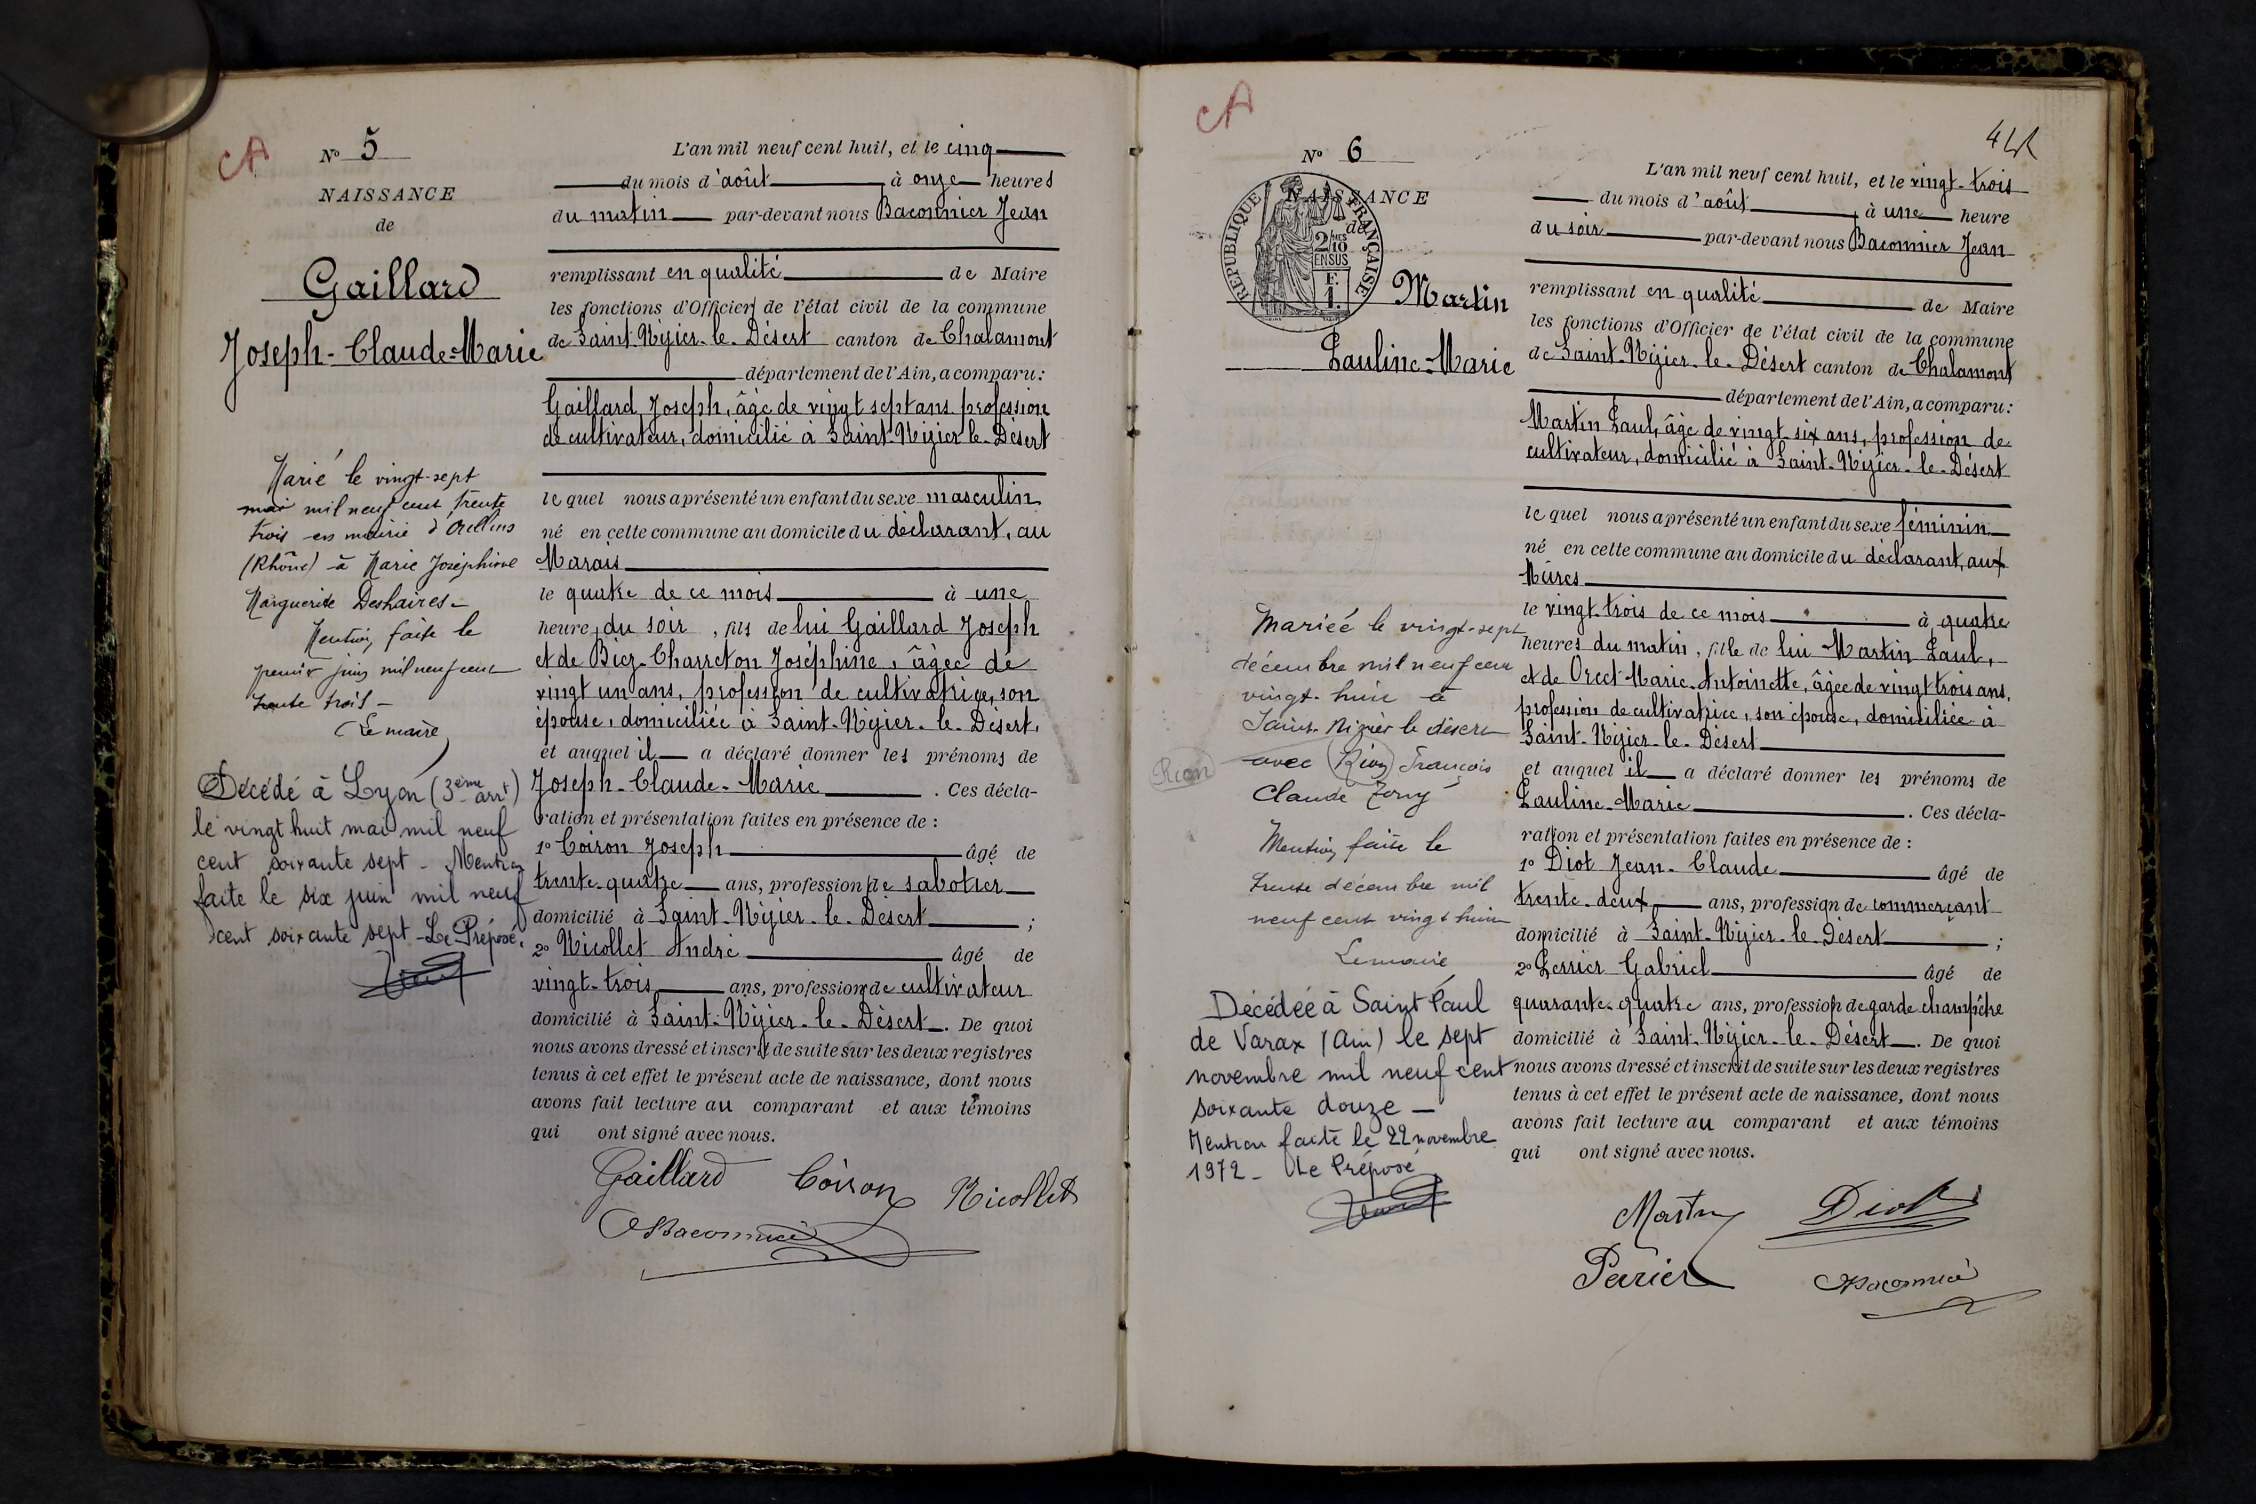 CA
N° 5
NAISSANCE
de
Gaillard
Joseph-Claude-Marie
Marié le vingt-sept
mai mil neuf cent trente
trois en mairie d'Oullins
(Rhône) à Marie Joséphine
Marguerite Deshaires-
Mention faite le
premier juin mil neuf cent
trente trois-
Le maire
Décédé à Lyon (3ème arrt)
le vingt huit mai mil neuf
cent soixante sept - Mention
faite le six juin mil neuf
cent soixante sept - Le Préposé.
L'an mil neuf cent huit, et le cinq
du mois d'août à onze heures
du matin par-devant nous Baconnier Jean
remplissant en qualité de Maire
les fonctions d'Officier de l'état civil de la commune
de Saint-Nizier-le-Désert canton de Chalamont
département de l'Ain, a comparu:
Gaillard Joseph, âgé de vingt sept ans profession
de cultivateur, domicilié à Saint-Nizier-le-Désert
lequel nous a présenté un enfant du sexe masculin
né en cette commune au domicile du déclarant, au
Marais
le quatre de ce mois à une
heure du soir, fils de lui Gaillard Joseph
et de Biez-Charreton Joséphine, âgée de
vingt un ans, profession de cultivatrice, son
épouse, domiciliée à Saint-Nizier-le-Désert,
et auquel il a déclaré donner les prénoms de
Joseph-Claude-Marie. Ces décla-
ration et présentation faites en présence de :
1° Coiron Joseph âgé de
trente-quatre ans, profession de sabotier
domicilié à Saint-Nizier-le-Désert ;
2° Nicollet André âgé de
vingt-trois ans, profession de cultivateur
domicilié à Saint-Nizier-le-Désert. De quoi
nous avons dressé et inscrit de suite sur les deux registres
tenus à cet effet le présent acte de naissance, dont nous
avons fait lecture au comparant et aux témoins
qui ont signé avec nous.
Gaillard Coiron Nicollet
Baconnier
CA
N° 6
NAISSANCE
de
RÉPUBLIQUE FRANÇAISE
2/10 MES
EN SUS
F.
1.
Martin
Pauline-Marie
Mariée le vingt-sept
décembre mil neuf cent
vingt-huit à
Saint-Nizier le désert
avec Rion François
Rion
Claude
Mention faite le
trente décembre mil
neuf cent vingt huit
Le maire
Décédée à Saint Paul
de Varax (Ain) le sept
novembre mil neuf cent
soixante douze -
Mention faite le 22 novembre
1972 - Le Préposé
L'an mil neuf cent huit, et le vingt-trois
du mois d'août à une heure
du soir par-devant nous Baconnier Jean
remplissant en qualité de Maire
les fonctions d'Officier de l'état civil de la commune
de Saint-Nizier-le-Désert canton de Chalamont
département de l'Ain, a comparu:
Martin Paul, âgé de vingt-six ans, profession de
cultivateur, domicilié à Saint-Nizier-le-Désert
lequel nous a présenté un enfant du sexe féminin
né en cette commune au domicile du déclarant, aux
Mûres
le vingt-trois de ce mois à quatre
heures du matin, fille de lui Martin Paul,
et de Orcet Marie-Antoinette, âgée de vingt trois ans,
profession de cultivatrice, son épouse, domiciliée à
Saint-Nizier-le-Désert
et auquel il a déclaré donner les prénoms de
Pauline-Marie. Ces décla-
ration et présentation faites en présence de :
1° Diot Jean-Claude âgé de
trente-deux ans, profession de commerçant
domicilié à Saint-Nizier-le-Désert ;
2° Perrier Gabriel âgé de
quarante-quatre ans, profession de garde champêtre
domicilié à Saint-Nizier-le-Désert. De quoi
nous avons dressé et inscrit de suite sur les deux registres
tenus à cet effet le présent acte de naissance, dont nous
avons fait lecture au comparant et aux témoins
qui ont signé avec nous.
Martin Diot
Perrier Baconnier